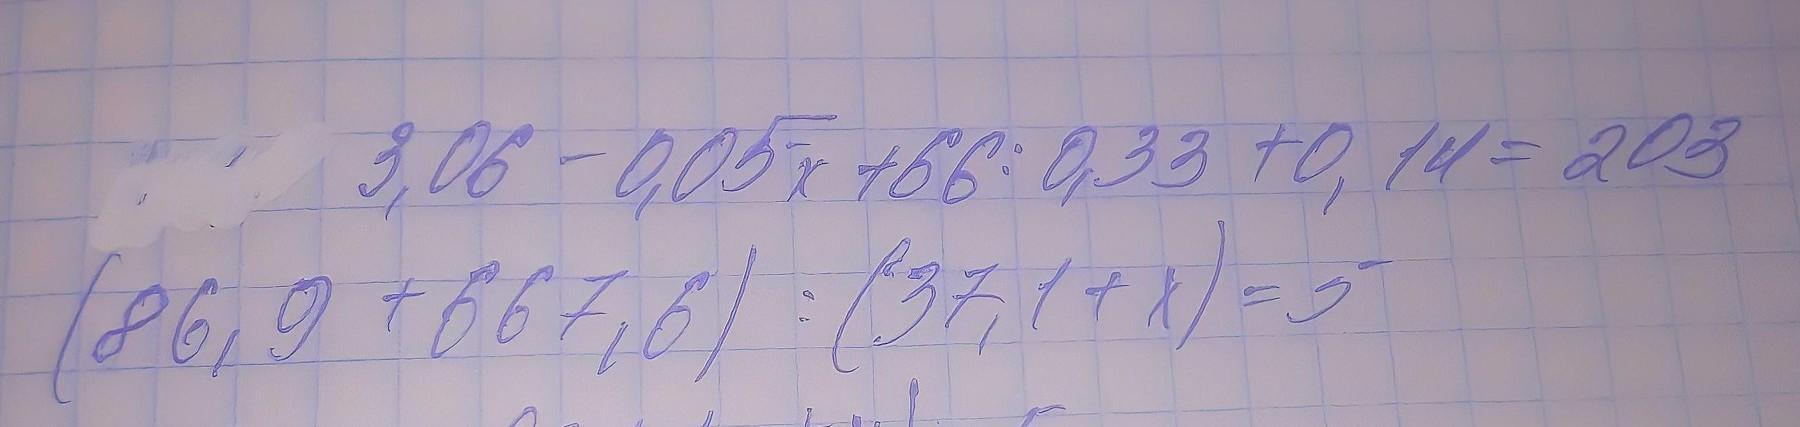 3,06 - 0,05x + 66 : 0,33 + 0,14 = 203
(86,9 + 667,6) : (37,1 + x) = 5